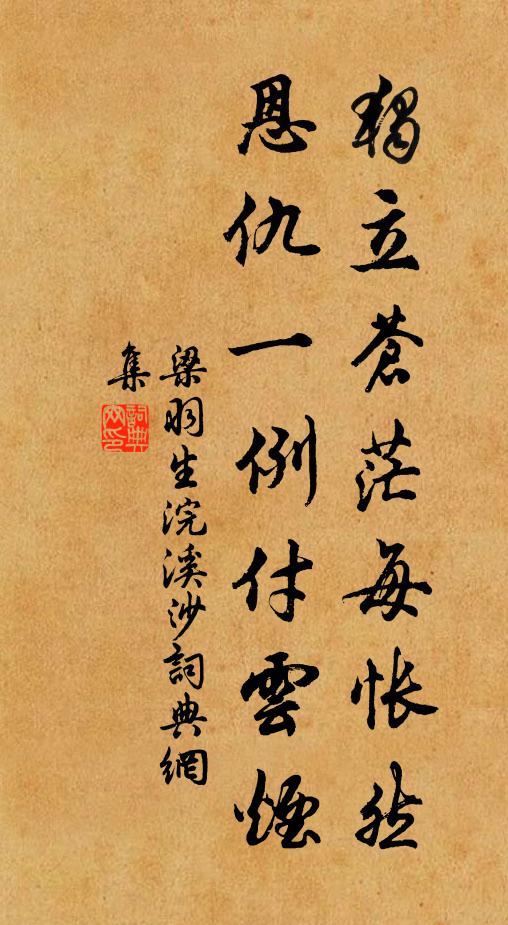 獨立蒼茫每悵然
恩仇一例付雲煙
梁羽生浣溪沙詞典網
集
詞典
網印